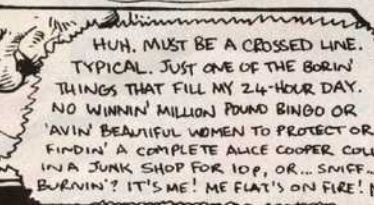 HUH. MUST BE A CROSSED LINE.
TYPICAL. JUST ONE OF THE BORIN'
THINGS THAT FILL MY 24-HOUR DAY.
NO WINNIN' MILLION POUND BINGO OR
'AVIN' BEAUTIFUL WOMEN TO PROTECT OR
FINDIN' A COMPLETE ALICE COOPER
IN A JUNK SHOP FOR 10p, OR... SNIFF...
BURNIN'? IT'S ME! ME FLAT'S ON FIRE!